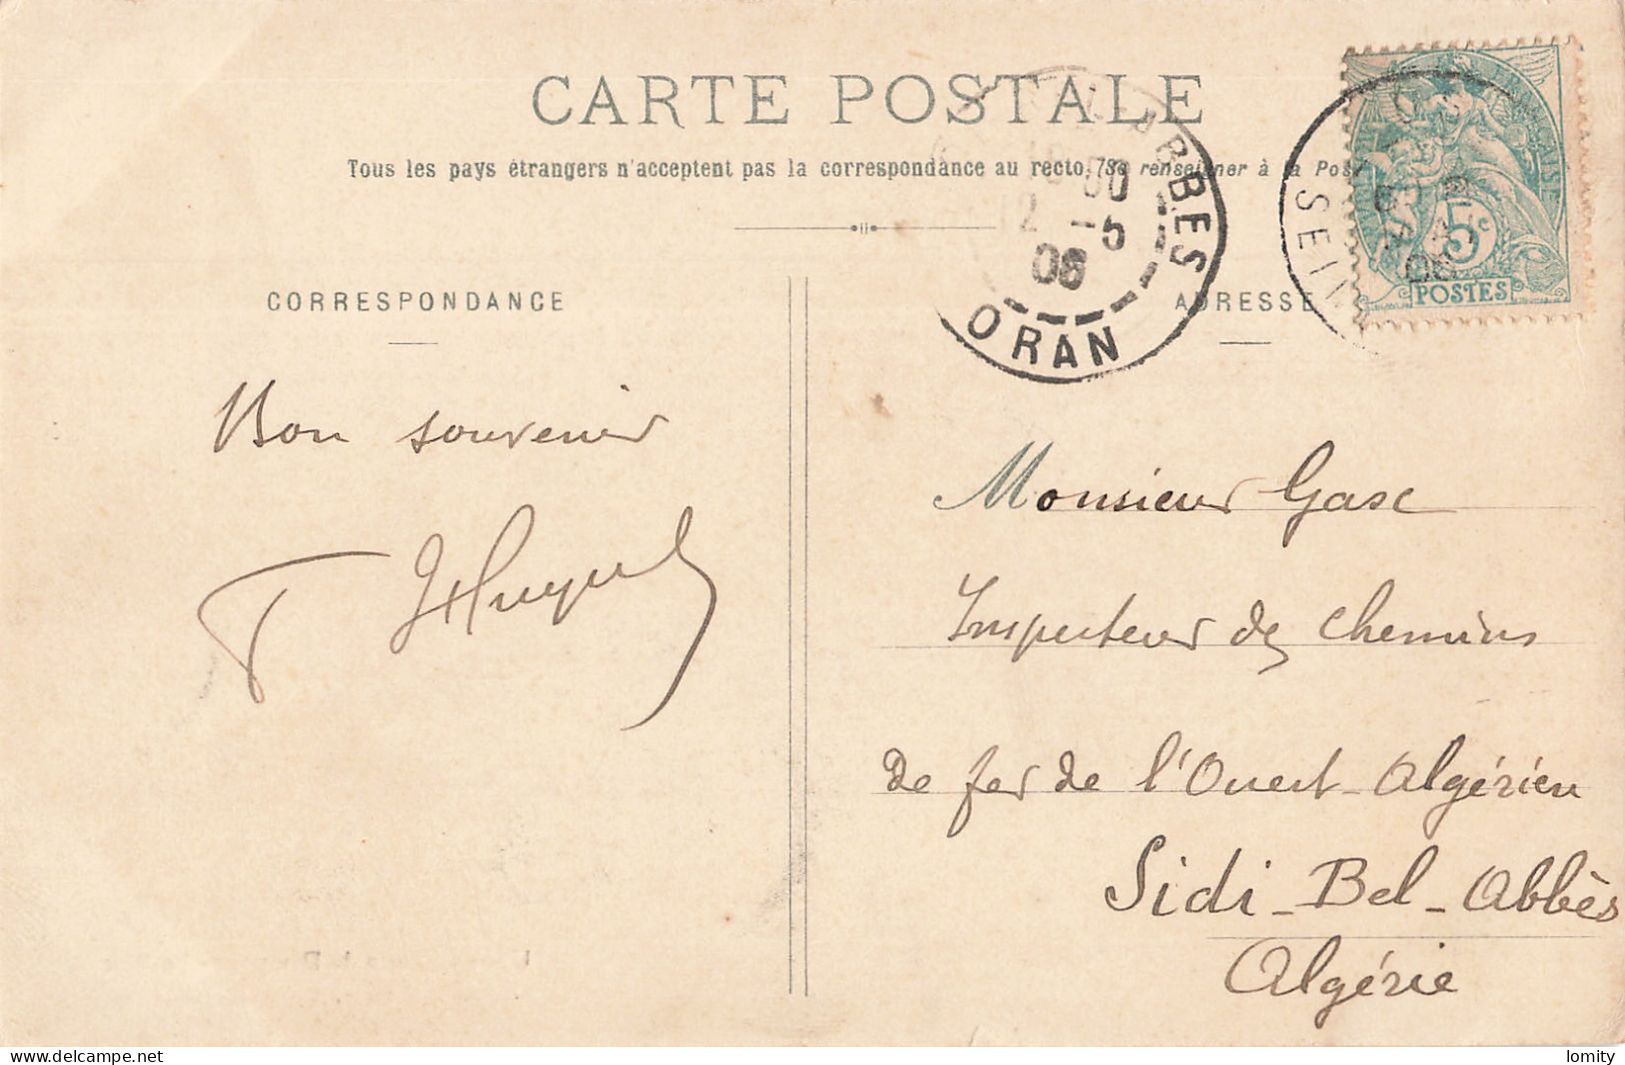 CARTE POSTALE
Tous les pays étrangers n'acceptent pas la correspondance au recto, (Se renseigner à la Pos
CORRESPONDANCE
ADRESSE
BES
ORAN
12 -5
06
SEIN
5c
POSTES
Bon souvenir
Monsieur Gasc
Inspecteur de chemins
de fer de l'Ouest-Algérien
Sidi-Bel-Abbès
Algérie
https://www.delcampe.net
lomity